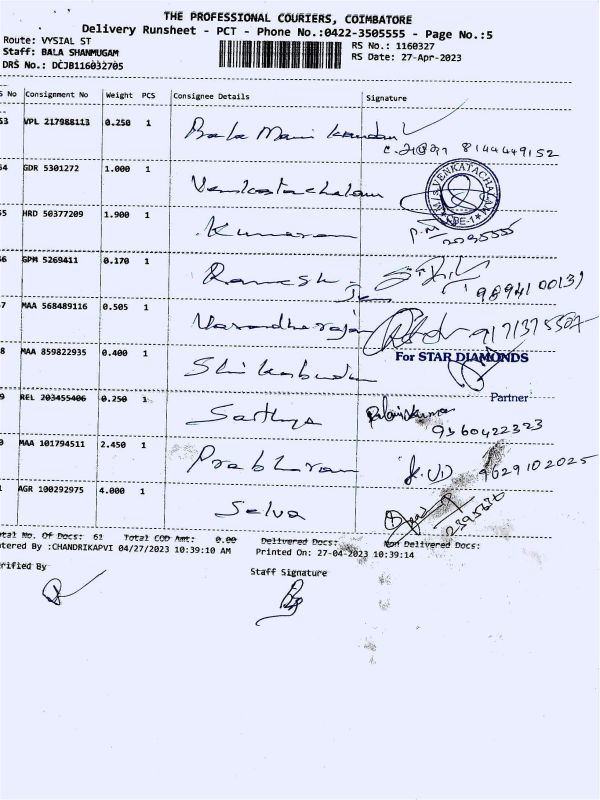 THE PROFESSIONAL COURIERS, COIMBATORE
Delivery Runsheet - PCT - Phone No.:0422-3505555 - Page No.:5
Route: VYSIAL ST
RS No.: 1160327
Staff: BALA SHANMUGAM
RS Date: 27-Apr-2023
DRS No.: DCJB116032705
S No Consignment No Weight PCS Consignee Details Signature
53 VPL 217988113 0.250 1 Bala Mani kandan
8144449152
54 GDR 5301272 1.000 1 Venkatachalam
M/S VENKATACHALAM
CBE-1
55 HRD 50377209 1.900 1 Kumaran
P.M 2035555
56 GPM 5269411 0.170 1 Ramesh
9894100131
57 MAA 568489116 0.505 1 Varandharajan
9171375504
8 MAA 859822935 0.400 1
For STAR DIAMONDS
Partner
9 REL 203455406 0.250 1 Sathya
9360422323
0 MAA 101794511 2.450 1 Prabhiram
9629102025
1 AGR 100292975 4.000 1 Selva
tal No. Of Docs: 61 Total COD Amt: 0.00 Delivered Docs: Non Delivered Docs:
tered By :CHANDRIKAPVI 04/27/2023 10:39:10 AM Printed On: 27-04-2023 10:39:14
rified By
Staff Signature